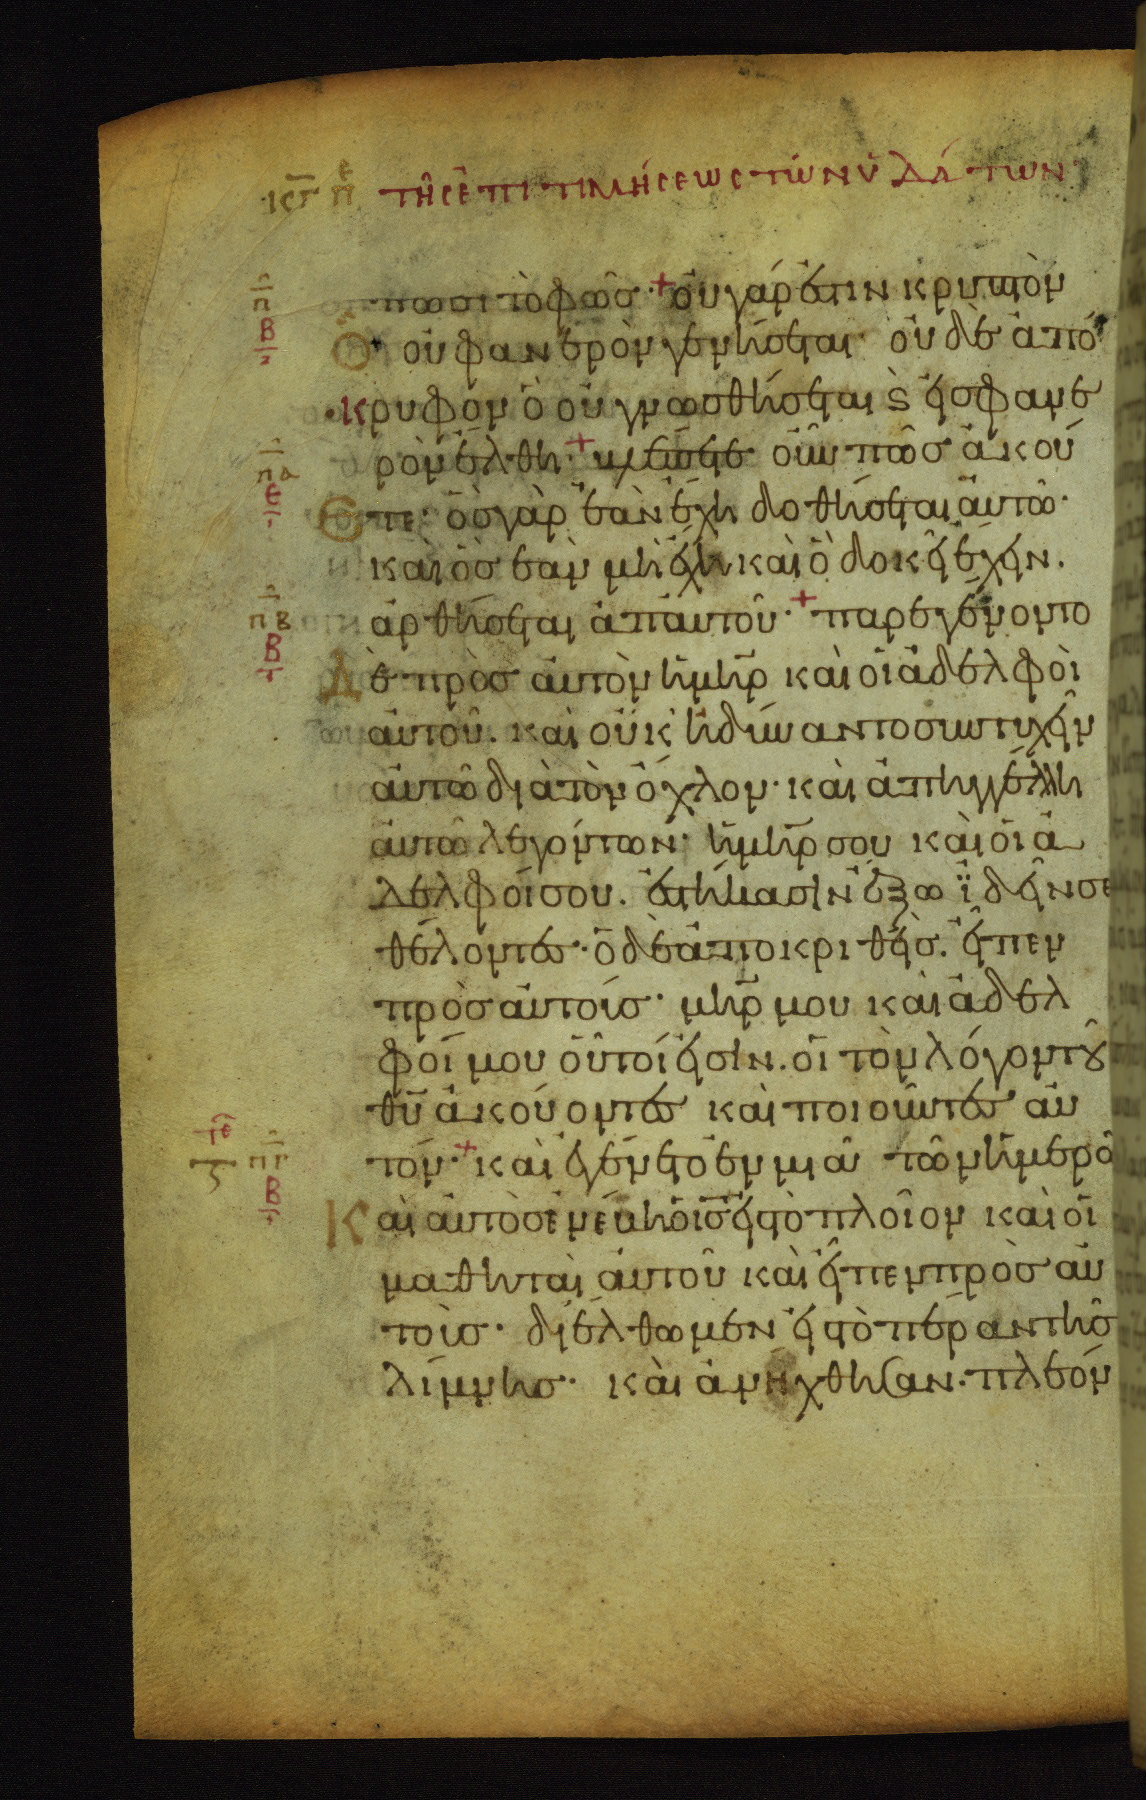 κγ π ε τῆς ἐπιτιμήσεως τῶν ὑδάτων
πωσι τὸ φῶς· + οὐ γάρ ἐστιν κρυπτὸν
π Β
Ὃ οὐ φανερὸν γενήσεται· οὐδὲ ἀπό
κρυφον ὃ οὐ γνωσθήσεται ϗ εἰς φανε
ρὸν ἔλθη· + βλέπετε οὖν πῶς ἀκού
πα ε
Ετε· ὃς γὰρ ἐὰν ἔχη δοθήσεται αὐτῶ·
καὶ ὃς ἐὰν μὴ ἔχη καὶ ὃ δοκεῖ ἔχειν.
ἀρθήσεται ἀπ αὐτοῦ· + παρεγένοντο
πβ Β
Δὲ πρὸς αὐτὸν ἡ μηρ καὶ οἱ ἀδελφοὶ
αὐτοῦ. καὶ οὐκ ἠδύναντο συντυχεῖν
αὐτῶ διὰ τὸν ὄχλον· καὶ ἀπηγγέλη
αὐτῶ λεγόντων· ἡ μηρ σου καὶ οἱ ἀ
δελφοί σου. ἑστήκασιν ἔξω ἰδεῖν σε
θέλοντες· ὁ δὲ ἀποκριθεὶς. εἶπεν
πρὸς αὐτούς· μηρ μου καὶ ἀδελ
φοί μου οὗτοί εἰσιν. οἱ τὸν λόγον τοῦ
θυ ἀκούοντες καὶ ποιοῦντες αὐ
τόν· + καὶ ἐγένετο ἐν μιᾶ τῶν ἡμερῶ
πγ Β
Καὶ αὐτὸς ἐνέβη ὁ ις εἰς τὸ πλοῖον καὶ οἱ
μαθηταὶ αὐτοῦ καὶ εἶπεν πρὸς αὐ
τούς· διέλθωμεν εἰς τὸ πέραν τῆς
λίμνης· καὶ ἀνήχθησαν· πλεόν